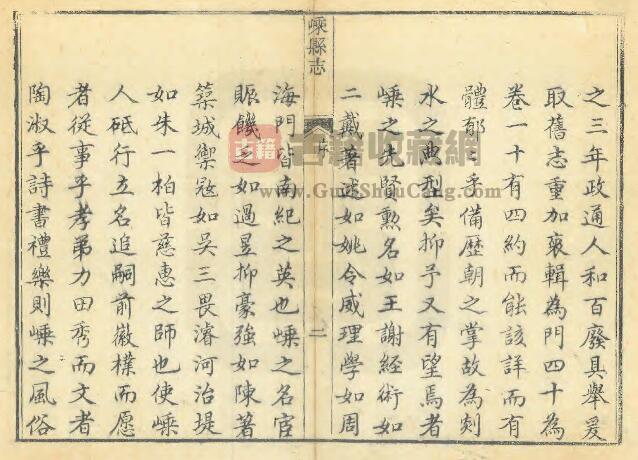 之三年政通人和百廢具舉爰
取舊志重加裒輯為門四十為
卷一十有四約而能該詳而有
體郁乎備歷朝之掌故為剡
水之典型矣抑予又有望焉者
嵊之先賢勲名如王謝經術如
二戴著述如姚令威理學如周
嵊縣志
二
海門皆南紀之英也嵊之名宦
賑饑之如過昱抑豪強如陳著
築城禦冦如吳三畏濬河治堤
如朱一柏皆慈惠之師也使嵊
人砥行立名追嗣前徽樸而愿
者從事乎孝弟力田秀而文者
陶淑乎詩書禮樂則嵊之風俗
古籍
古籍收藏網
www.GuJiShouCang.com